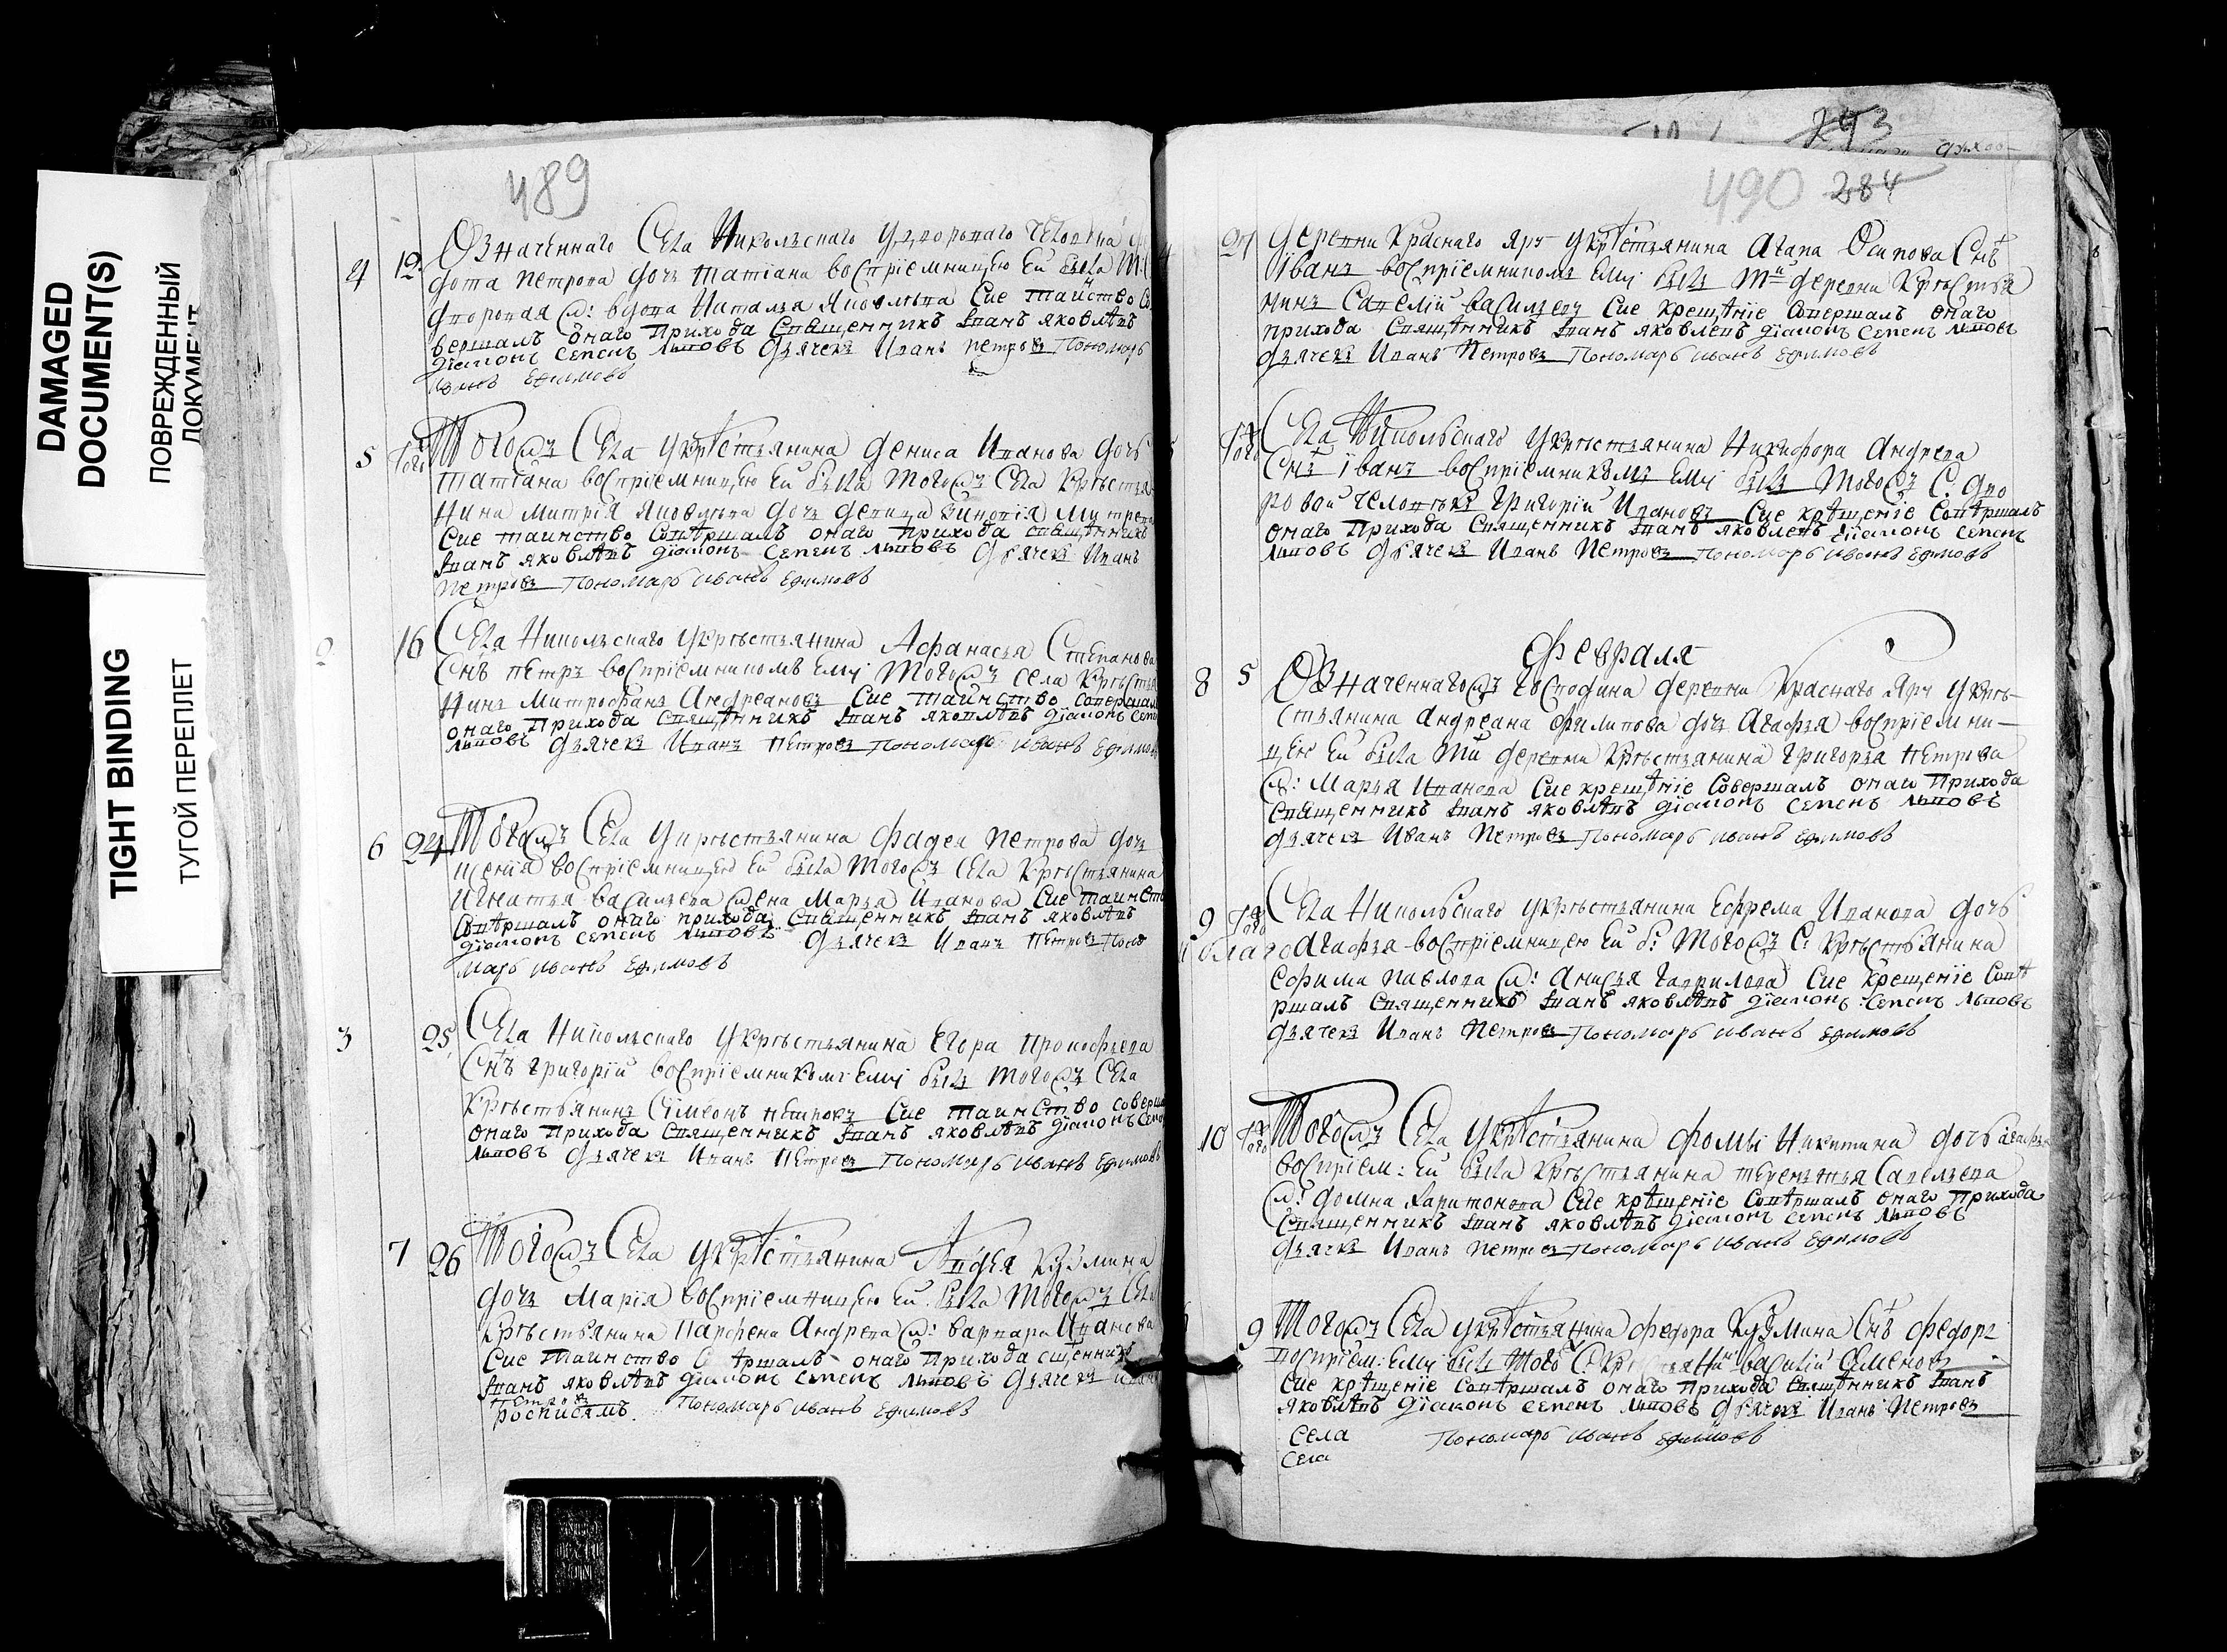 DAMAGED
DOCUMENT(S)
ПОВРЕЖДЕННЫЙ
ДОКУМЕНТ
TIGHT BINDING
ТУГОЙ ПЕРЕПЛЕТ
489
4 12 Означеннаго Села Никольскаго у дворонаго
фота петрова дочь татiана воспрiемницею ей была
вдова наталья яковлева Сие таинство
вершалъ онаго прихода священникъ Iванъ яковлевъ
дiаконъ семенъ львовъ дьячекъ Иванъ петровъ Пономарь
Иванъ Ефимовъ
5 Того Тогожъ Села у крестьянина дениса Иванова дочь
татiана воспрiемницею ей была тогожъ Села крестья
нина митрiя яковлева дочь девица
Сие таинство Совершалъ онаго прихода священникъ
Iванъ яковлевъ дiаконъ семенъ львовъ дьячекъ Иванъ
петровъ Пономарь иванъ Ефимовъ
16 Села Никольскаго у крестьянина Афанасья Степанова
Снъ петръ воспрiемникомъ ему тогожъ села крестья
нинъ митрофанъ Андреяновъ Сие таинство совершалъ
онаго прихода священникъ Iванъ яковлевъ дiаконъ
львовъ дьячекъ Иванъ петровъ Пономарь иванъ Ефимовъ
6 24 Тогожъ Села у крестьянина фадея петрова дочь
воспрiемницею ей была тогожъ села крестьянина
игнатья васильева жена марья Иванова Сие таинство
Совершалъ онаго прихода священникъ Iванъ яковлевъ
дiаконъ семенъ львовъ дьячекъ Иванъ петровъ Поно
марь иванъ Ефимовъ
3 25 Села Никольскаго у крестьянина Егора прокофьева
Снъ григорiй воспрiемникомъ ему былъ тогожъ Села
крестьянинъ Сiмеонъ петровъ Сие таинство соверша
онаго прихода священникъ Iванъ яковлевъ дiаконъ
львовъ дьячекъ Иванъ петровъ Пономарь иванъ Ефимовъ
7 26 Тогожъ Села у крестьянина кузмина
дочь Марiя воспрiемницею ей была тогожъ Села
крестьянина парфена Андреева ж: варвара Иванова
Сие таинство онаго прихода сщенникъ
Iванъ яковлевъ дiаконъ семенъ львовъ дьячекъ иванъ
петровъ
росписемъ. Пономарь иванъ Ефимовъ
293
490 284
27 деревни краснаго яру у крестьянина агапа Осипова Снъ
iванъ воспрiемникомъ ему былъ деревни крестья
нинъ Савелiй васильевъ Сие крещенiе Совершалъ онаго
прихода Священникъ Iванъ яковлевъ дiаконъ Семенъ львовъ
дьячекъ Иванъ Петровъ Пономарь иванъ Ефимовъ
Того Села Никольскаго у крестьянина Никифора Андреева
Снъ iванъ воспрiемникомъ ему былъ тогожъ С. дво
ровой человекъ григорiй Ивановъ Сие крещенiе Совершалъ
онаго прихода Священникъ Iванъ яковлевъ дiаконъ Семенъ
львовъ дьячекъ Иванъ петровъ Пономарь иванъ Ефимовъ
Февраля
8 5 Означеннагожъ господина деревни краснаго яру у кресть-
стьянина андреяна филипова дочь Агафья воспрiемни-
цею ей была деревни крестьянина григорья петрова
ж: марья Иванова Сие крещенiе Совершалъ онаго прихода
священникъ Iванъ яковлевъ дiаконъ Семенъ львовъ
дьячекъ Иванъ петровъ Пономарь иванъ Ефимовъ
9 Того Села Никольскаго у крестьянина Ефрема Иванова дочь
Агафья воспрiемницею ей б: тогожъ С: крестьянина
Ефима павлова ж: анисья гаврилова Сие крещенiе Сове
ршалъ Священникъ Iванъ яковлевъ дiаконъ Семенъ львовъ
дьячекъ Иванъ петровъ Пономарь иванъ Ефимовъ
10 Того Тогожъ Села у крестьянина фомы Никитина дочь агафья
воспрiем: ей была крестьянина терентья Савельева
ж: домна харитонова Сие крещенiе Совершалъ онаго прихода
Священникъ Iванъ яковлевъ дiаконъ Семенъ львовъ
дьячекъ Иванъ петровъ Пономарь иванъ Ефимовъ
9 Тогожъ Села у крестьянина федора кузмина Снъ федоръ
воспрiем: ему былъ того С: василiй Семеновъ
Сие крещенiе Совершалъ онаго прихода Священникъ Iванъ
яковлевъ дiаконъ семенъ львовъ дьячекъ Иванъ петровъ
Села Пономарь иванъ Ефимовъ
Села